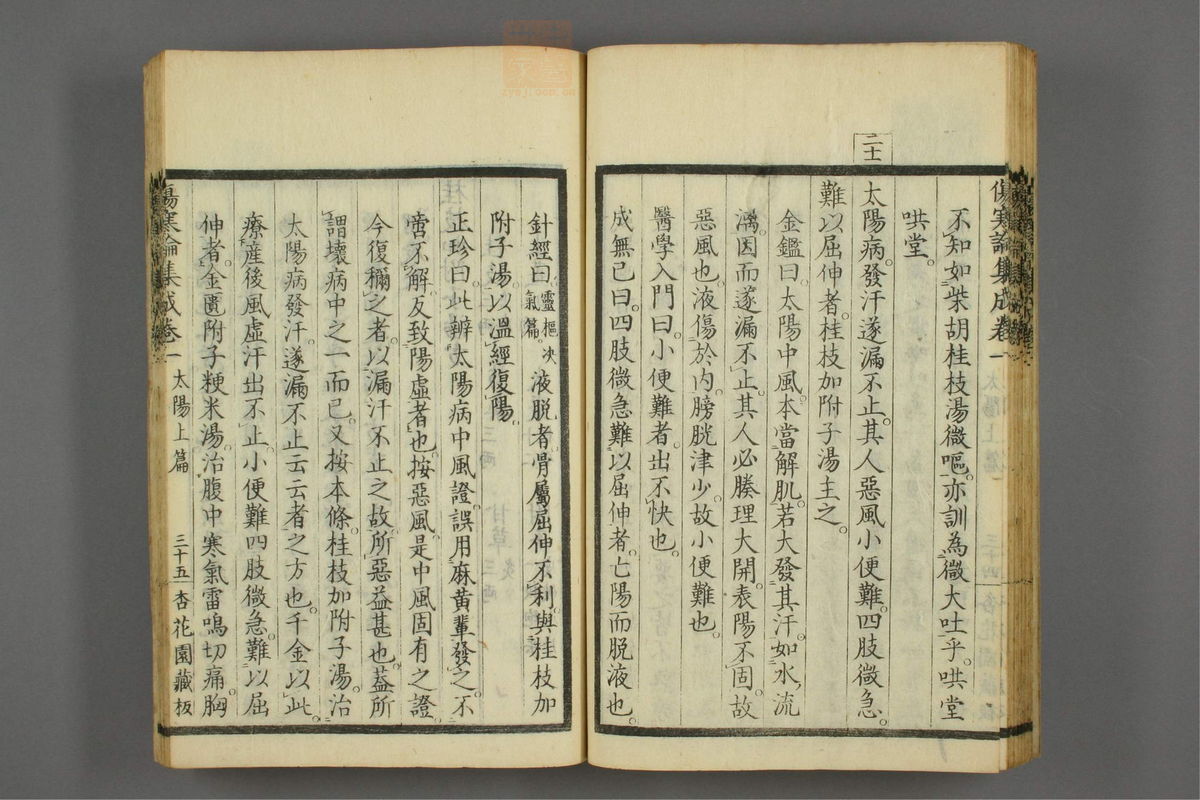 傷寒論集成卷一
不知如柴胡桂枝湯微嘔亦訓為微大吐乎哄堂
哄堂
二十一
太陽病發汗遂漏不止其人惡風小便難四肢微急
難以屈伸者桂枝加附子湯主之
金鑑曰太陽中風本當解肌若大發其汗如水流
漓因而遂漏不止其人必腠理大開表陽不固故
惡風也液傷於內膀胱津少故小便難也
醫學入門曰小便難者出不快也
成無已曰四肢微急難以屈伸者亡陽而脫液也
針經曰靈樞決氣篇液脫者骨屬屈伸不利與桂枝加
附子湯以溫經復陽
正珍曰此辨太陽病中風證誤用麻黃輩發之不
啻不解反致陽虛者也按惡風是中風固有之證
今復稱之者以漏汗不止之故所惡益甚也蓋所
謂壞病中之一而已又按本條桂枝加附子湯治
太陽病發汗遂漏不止云云者之方也千金以此
療產後風虛汗出不止小便難四肢微急難以屈
伸者金匱附子粳米湯治腹中寒氣雷鳴切痛胸
傷寒論集成卷一 太陽上篇 三十五 杏花園藏板